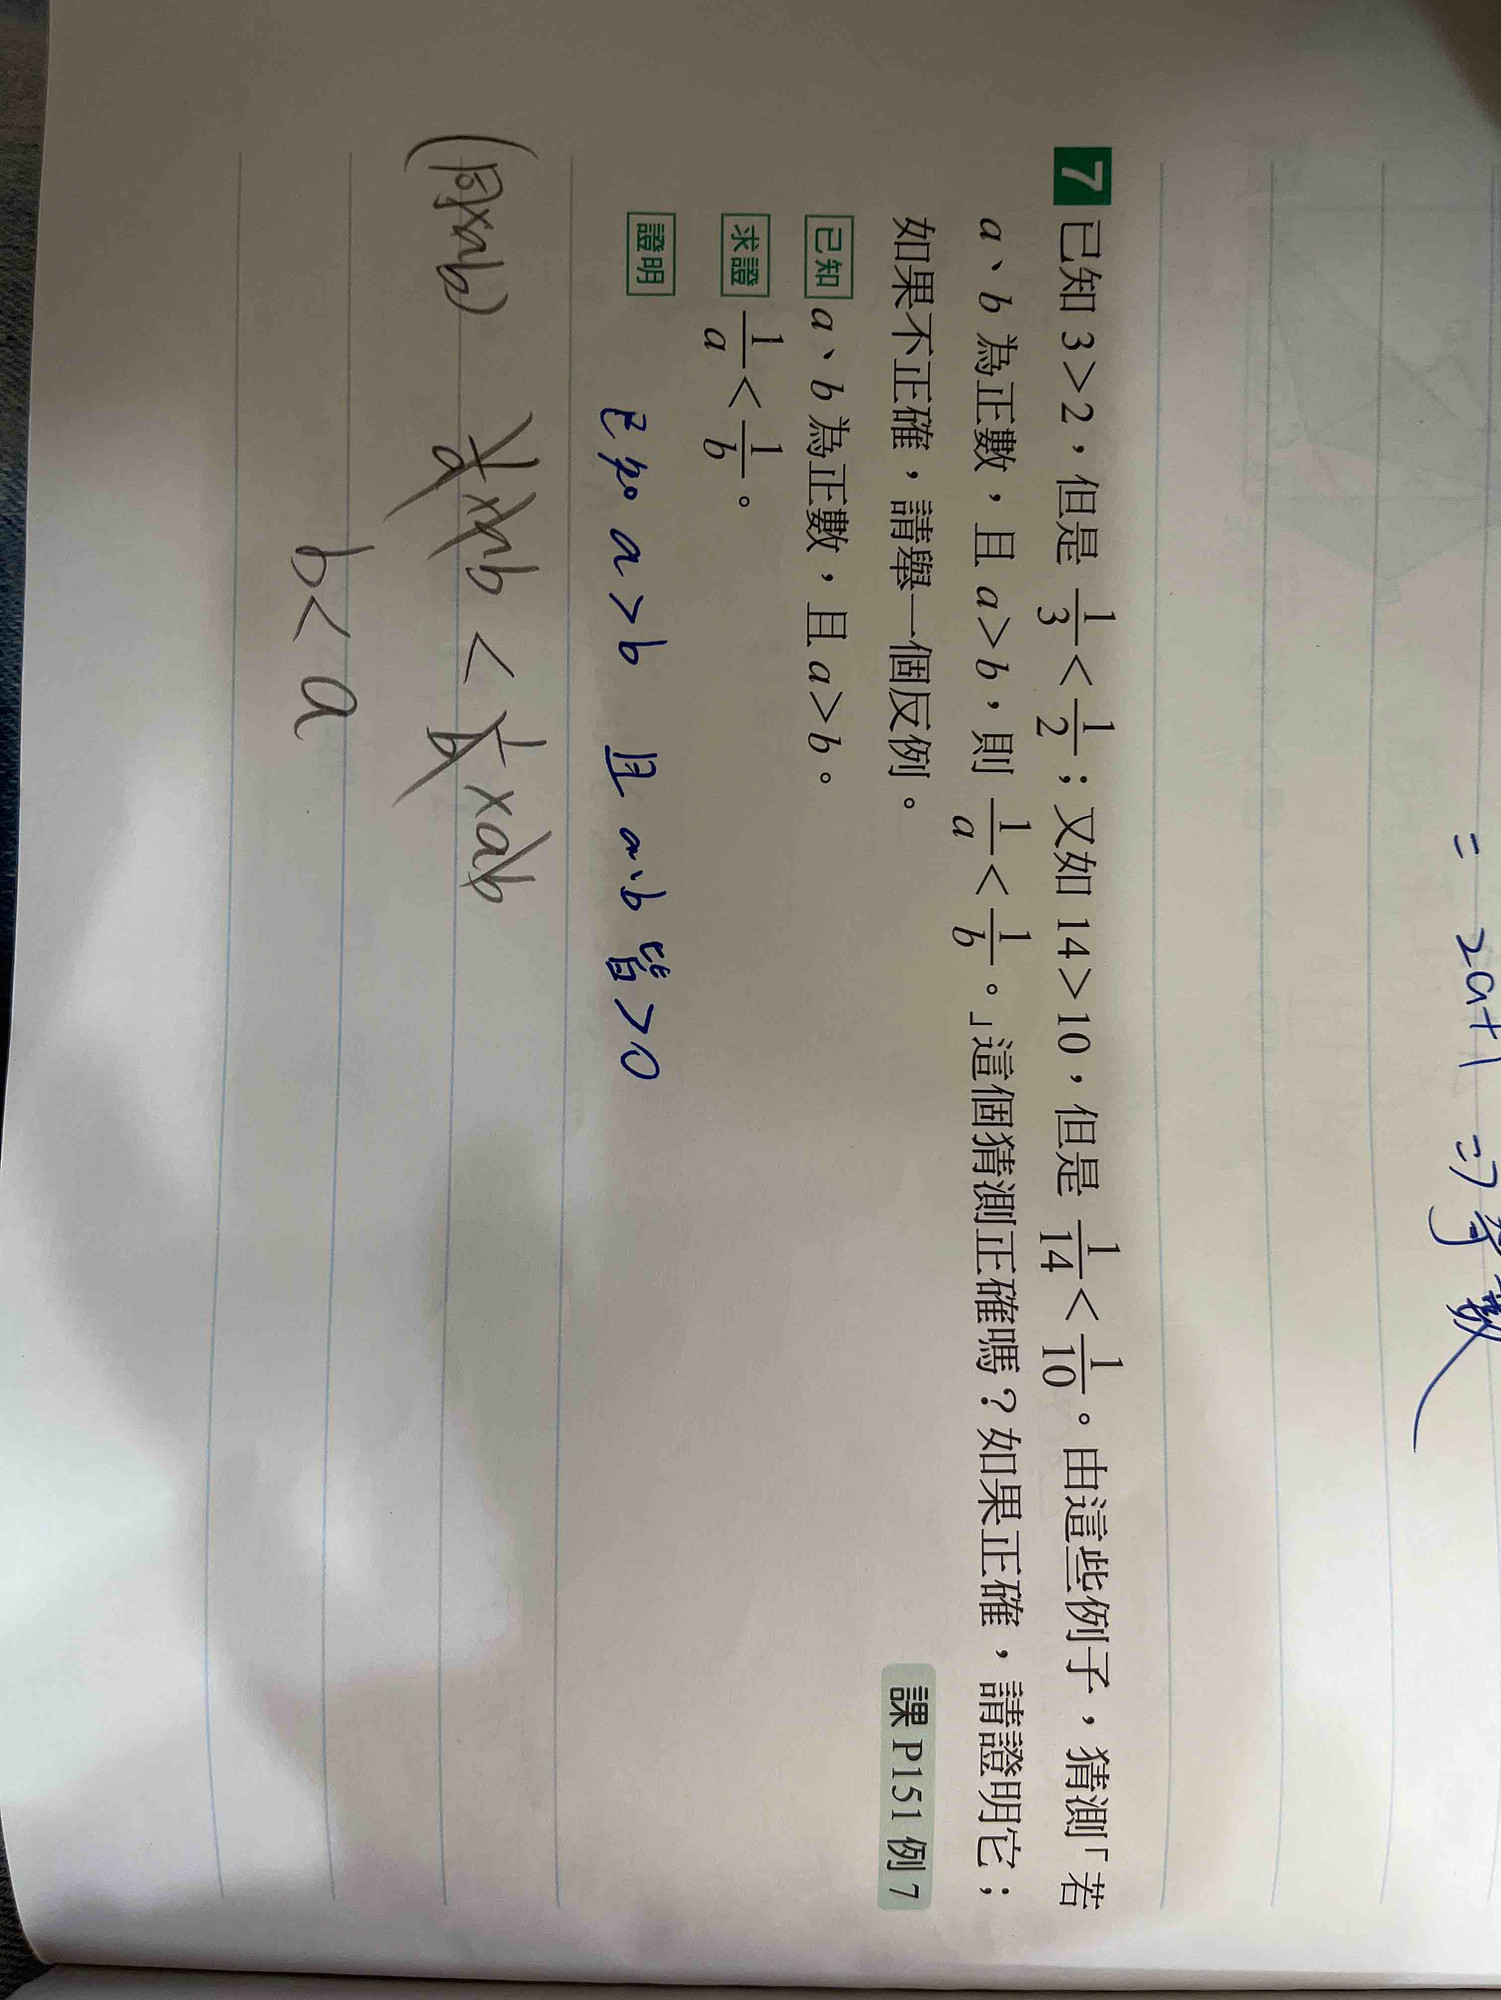 = 2a+1 => 奇數
7 已知 3>2，但是 1/3 < 1/2；又如 14>10，但是 1/14 < 1/10。由這些例子，猜測「若
a、b 為正數，且 a>b，則 1/a < 1/b。」這個猜測正確嗎？如果正確，請證明它；
如果不正確，請舉一個反例。
課 P151 例 7
已知 a、b 為正數，且 a>b。
求證 1/a < 1/b。
證明
已知 a>b 且 a、b 皆>0
(同×ab) 1/a×ab < 1/b×ab
b<a